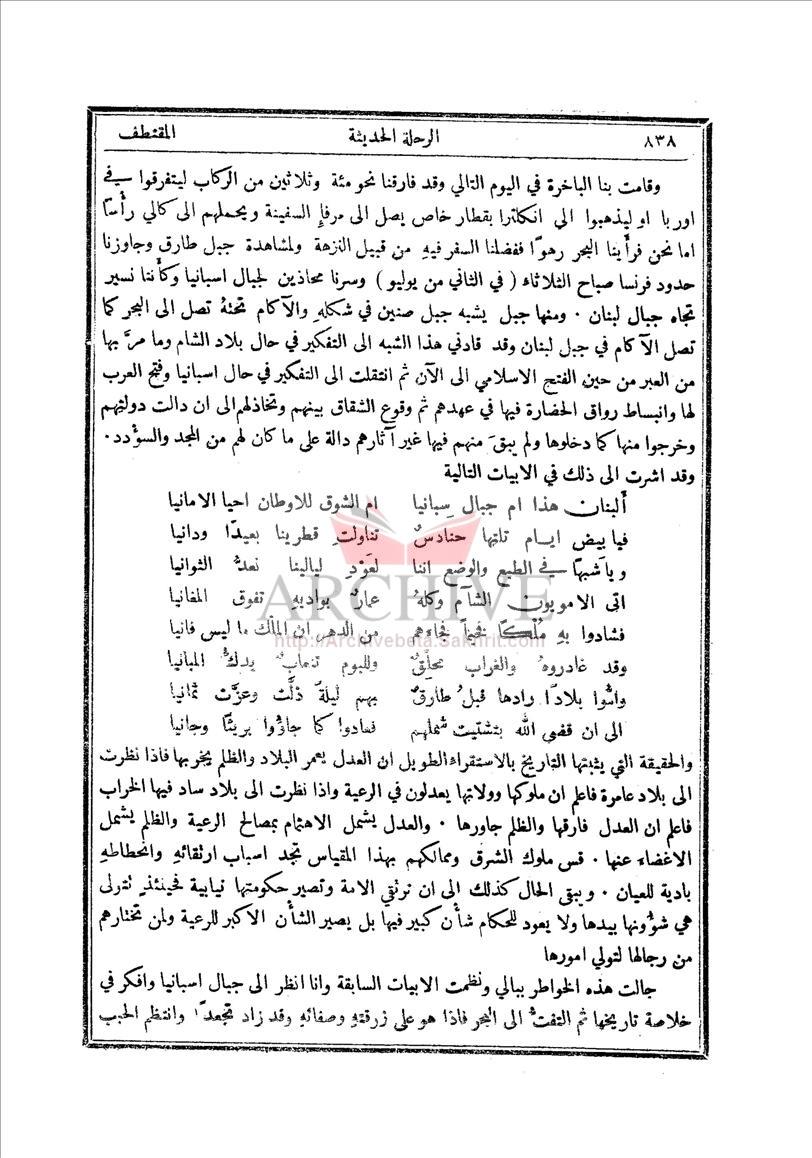 ٨٣٨ الرحلة الحديثة المقتطف
وقامت بنا الباخرة في اليوم التالي وقد فارقنا نحو مئة وثلاثين من الركاب ليتفرقوا في
اوربا او ليذهبوا الى انكلترا بقطار خاص يصل الى مرفإ السفينة ويحملهم الى كالي رأسًا
اما نحن فرأينا البحر رهوًا ففضلنا السفر فيهِ من قبيل النزهة ولمشاهدة جبل طارق وجاوزنا
حدود فرنسا صباح الثلاثاء ( في الثاني من يوليو ) وسرنا محاذين لجبال اسبانيا وكأننا نسير
تجاه جبال لبنان ٠ ومنها جبل يشبه جبل صنين في شكلهِ والآكام تحتهُ تصل الى البحر كما
تصل الآكام في جبل لبنان وقد قادني هذا الشبه الى التفكير في حال بلاد الشام وما مرَّ بها
من العبر من حين الفتح الاسلامي الى الآن ثم انتقلت الى التفكير في حال اسبانيا وفتح العرب
لها وانبساط رواق الحضارة فيها في عهدهم ثم وقوع الشقاق بينهم وتخاذلهم الى ان دالت دولتهم
وخرجوا منها كما دخلوها ولم يبقَ منهم فيها غير آثارهم دالة على ما كان لهم من المجد والسؤدد٠
وقد اشرت الى ذلك في الابيات التالية
أَلبنان هذا ام جبال سِبانيا ام الشوق للاوطان احيا الامانيا
فيا بيض ايام تلتها حنادسٌ تناولتِ قطرينا بعيدًا ودانيا
ويا شبهًا في الطبع والوضع اننا لعَوْدِ ليالينا نعدُّ الثوانيا
اتى الامويون الشآم وكلهُ عمارٌ بواديهِ تفوق المغانيا
فشادوا بهِ مُلْكًا فخيمًا فجاءهم من الدهر ان الملك ما ليس فانيا
وقد غادروهُ والغراب محلِّقٌ وللبوم تنعابٌ يدكُّ المبانيا
وامُّوا بلادًا رادها قبلُ طارقٌ بهم ليلةً ذلَّت وعزَّت ثمانيا
الى ان قضى الله بتشتيت شملهم فعادوا كما جازُوا بريئًا وجانيا
والحقيقة التي يثبتها التاريخ بالاستقراء الطويل ان العدل يعمر البلاد والظلم يخربها فاذا نظرت
الى بلاد عامرة فاعلم ان ملوكها وولاتها يعدلون في الرعية واذا نظرت الى بلاد ساد فيها الخراب
فاعلم ان العدل فارقها والظلم جاورها ٠ والعدل يشمل الاهتمام بمصالح الرعية والظلم يشمل
الاغضاء عنها ٠ قس ملوك الشرق وممالكهم بهذا المقياس تجد اسباب ارتقائهِ وانحطاطهِ
بادية للعيان ٠ ويبقى الحال كذلك الى ان ترتقي الامة وتصير حكومتها نيابية فحينئذٍ تتولى
هي شؤُونها بيدها ولا يعود للحكام شأن كبير فيها بل يصير الشأن الاكبر للرعية ولمن تختارهم
من رجالها لتولي امورها
جالت هذه الخواطر ببالي ونظمت الابيات السابقة وانا انظر الى جبال اسبانيا وافكر في
خلاصة تاريخها ثم التفتُّ الى البحر فاذا هو على زرقتهِ وصفائهِ وقد زاد تجعدًا وانتظم الحبب
ARCHIVE
http://Archivebeta.Sakhrit.com